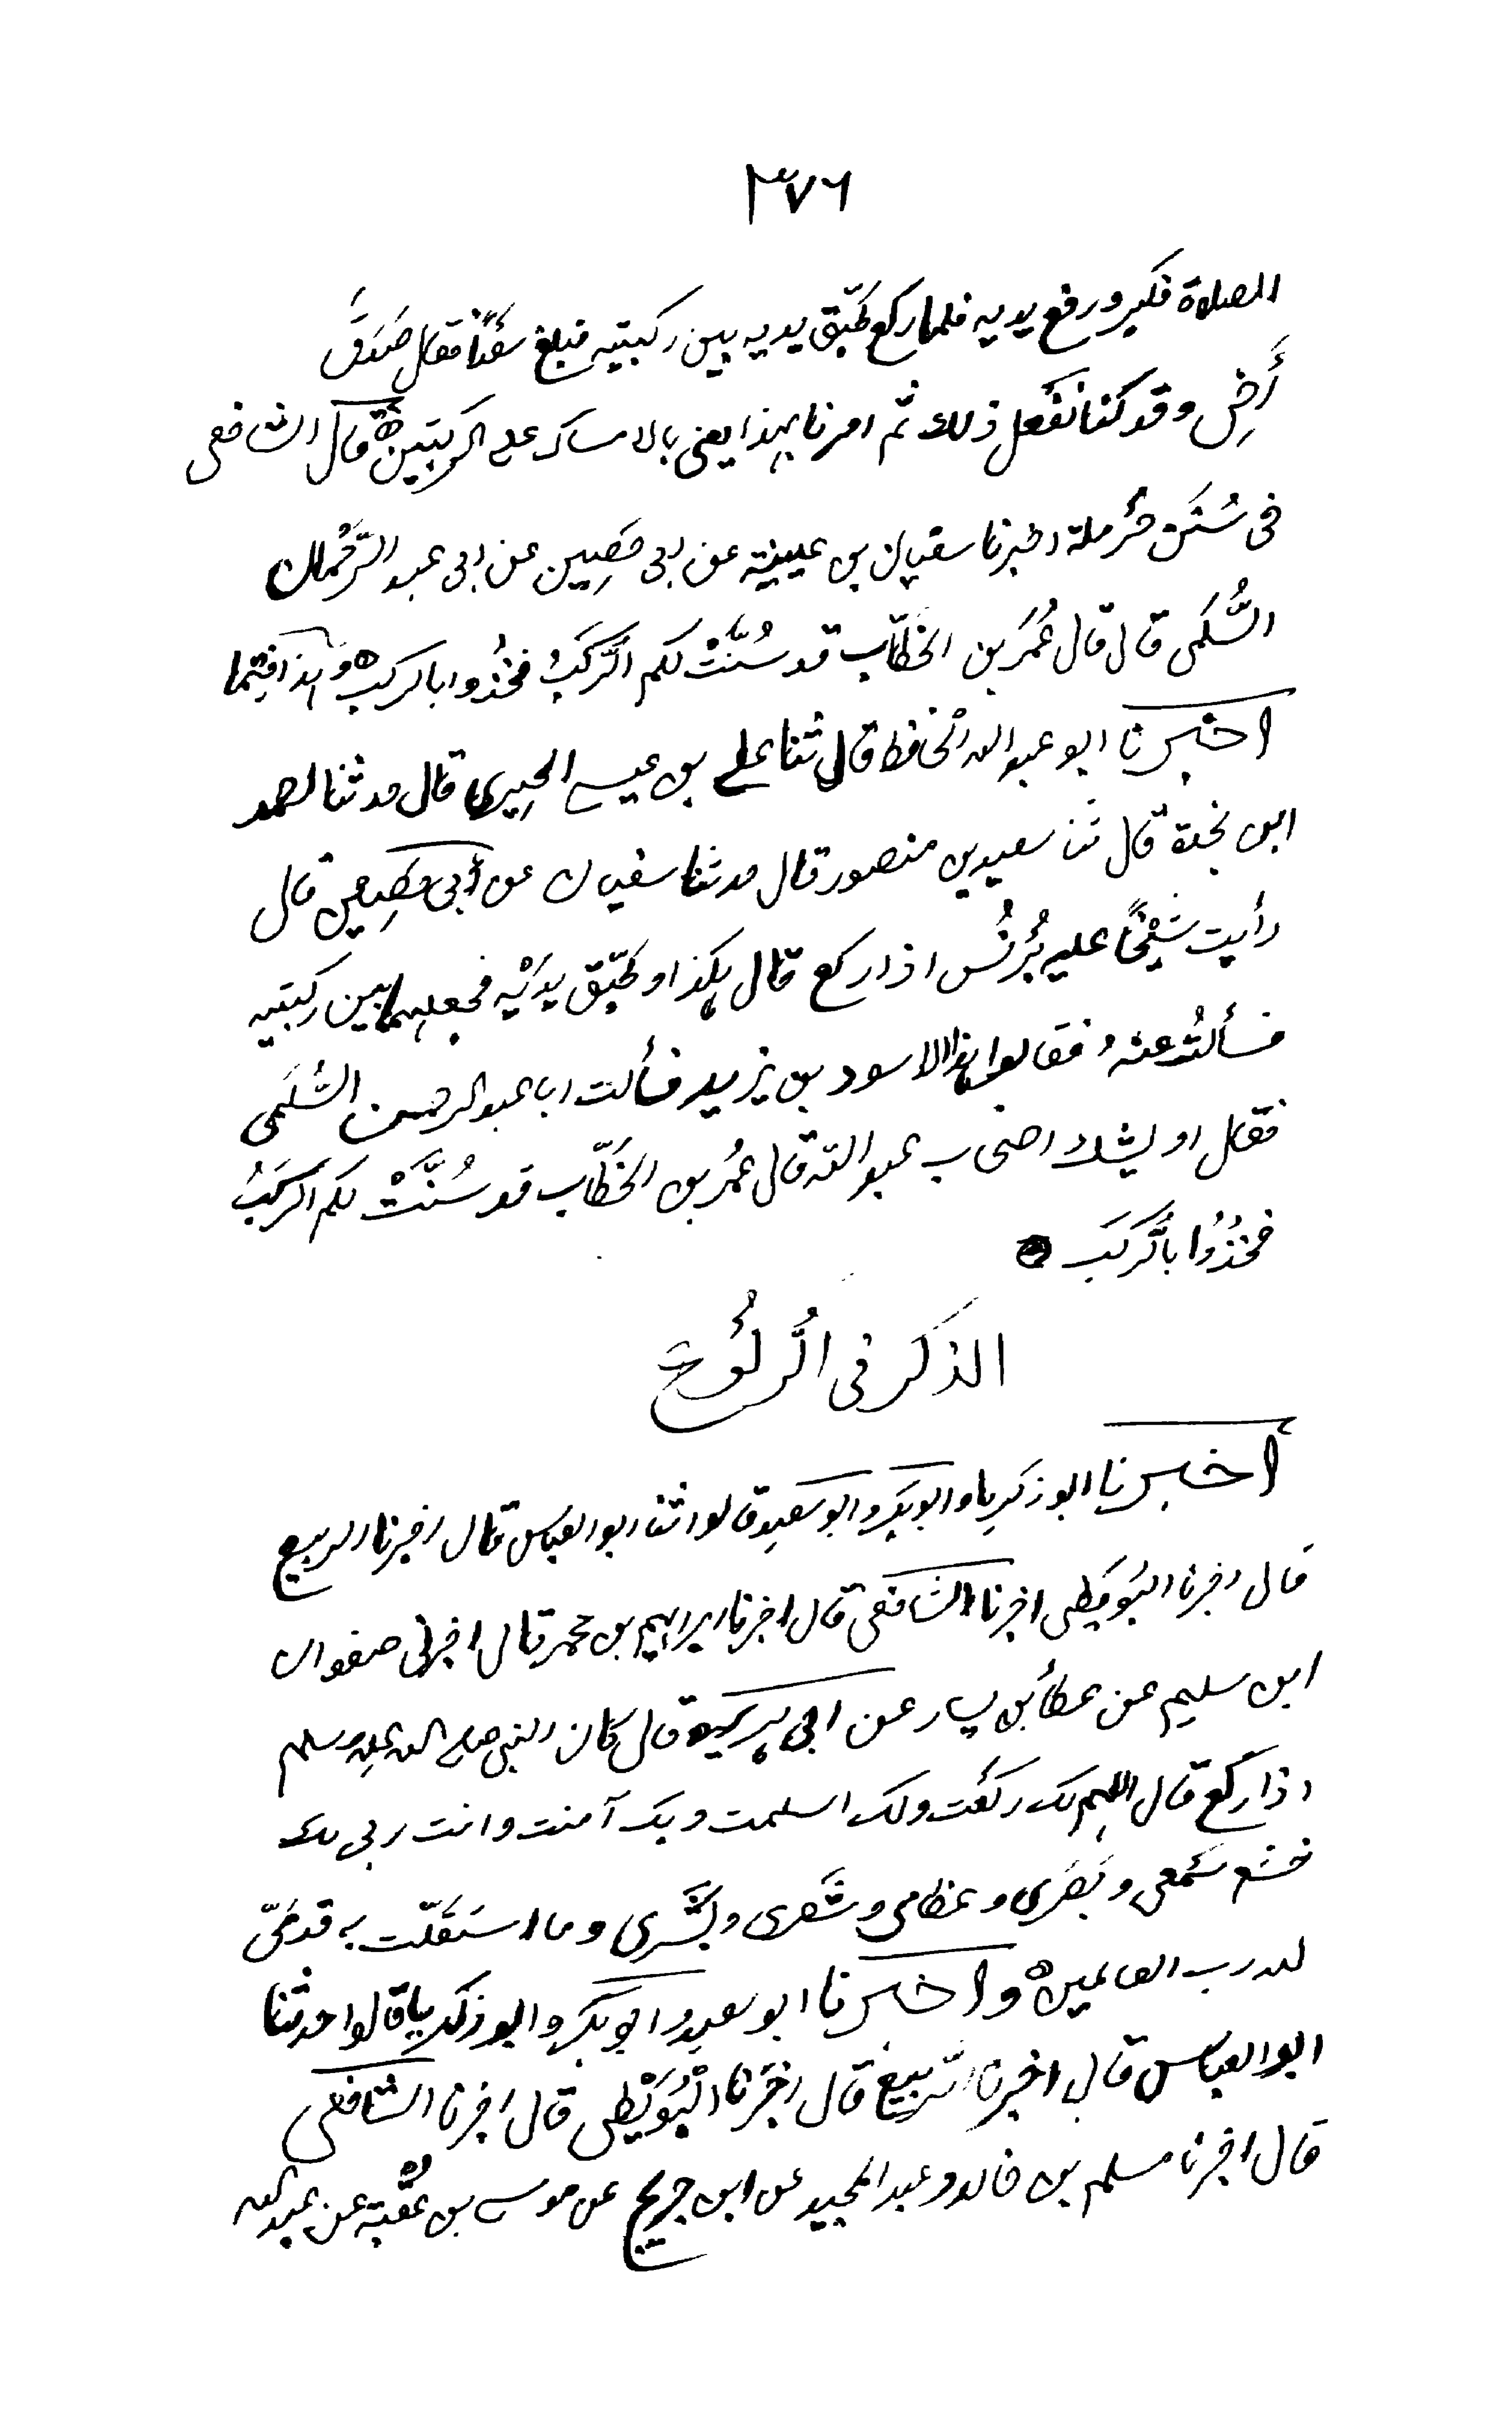 ٣٧٦
الصلاة فكبر ورفع يديه فلما ركع طبّق يديه بين ركبتيه فبلغ سَعْدًا فقال صَدَقَ
أَخِي وقد كنا نفعل ذلك ثم امرنا بهذا يعني بالامساك على الركبتين ه قال الشافعي
في سُنَن حَرْملة اخبرنا سفيان بن عيينة عن ابي حَصِين عن ابي عبد الرَّحْمٰن
السُّلَمى قال قال عُمَر بن الخطّاب قد سُنَّتْ لكم الرُّكَبُ فخُذُوا بالركب ه وهذا فيما
اخبرنا ابو عبد الله الْحافظ قال ثنا علي بن عيسى الحِيرِي قال حدثنا احمد
ابن نجدة قال ثنا سعيد بن منصور قال حدثنا سفيان عن أبي حَصِين قال
رأيت شَيْخًا عليه بُرْنُس اذا ركع قال هكذا وطبّق يَدَيْه فجعلهما بين ركبتيه
فسألتُ عنهُ فقالوا هذا الاسود بن يزيد فسألت ابا عبد الرحمن السُّلَمى
فقال اوليئك اصحاب عبد الله قال عُمَر بن الخَطّاب قد سُنَّتْ لكم الرُّكَبُ
فخُذُوا بالرُّكَب ه
الذكر في الرُّكُوع
أخبرنا ابو زكريا وابو بكر وابو سعيد قالوا ثنا ابو العباس قال اخبرنا الربيع
قال اخبرنا البُوَيطى اخبرنا الشافعى قال اخبرنا ابراهيم بن محمد قال اخبرني صفوان
ابن سليم عن عطاء بن يسار عن ابي هريرة قال كان النبي صلى الله عليه وسلم
اذا ركع قال اللهم لك ركَعْت ولك اسلمت وبك آمنت وانت ربي لك
خشع سَمْعي وبَصَري وعظامي وشَعرى وبَشَرى وما استَقلّت به قدمَيّ
لله رب العالمين ه واخبرنا ابو سعيد وابو بكر وابو زكريا قالوا حدثنا
ابو العباس قال اخبرنا الرّبيع قال اخبَرنا الْبُوَيْطى قال اخبرنا الشافعى
قال اخبرنا مسلم بن خالد وعبد المجيد عن ابن جريج عن موسى بن عُقْبة عن عبد الله